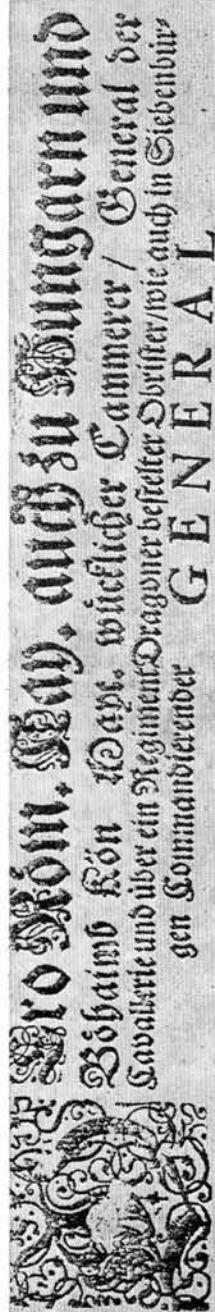 Iro Röm. Kay. auch zu Hungarn und
Böhaimb Kön Mayt. würcklicher Cammerer/ General der
Cavallerie und über ein Regiment Dragoner bestelter Obrister/wie auch in Siebenbür-
gen Commandierender GENERAL